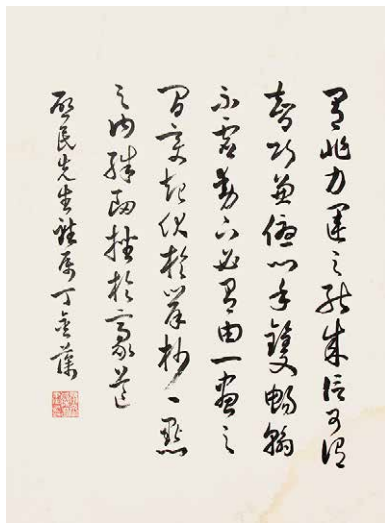 有非力運之能成信可謂
智巧兼優心手雙暢翰
不虛動下必有由一畫之
間變起伏於峯杪一點
之內殊衄挫於豪芒
民先生雅屬丁